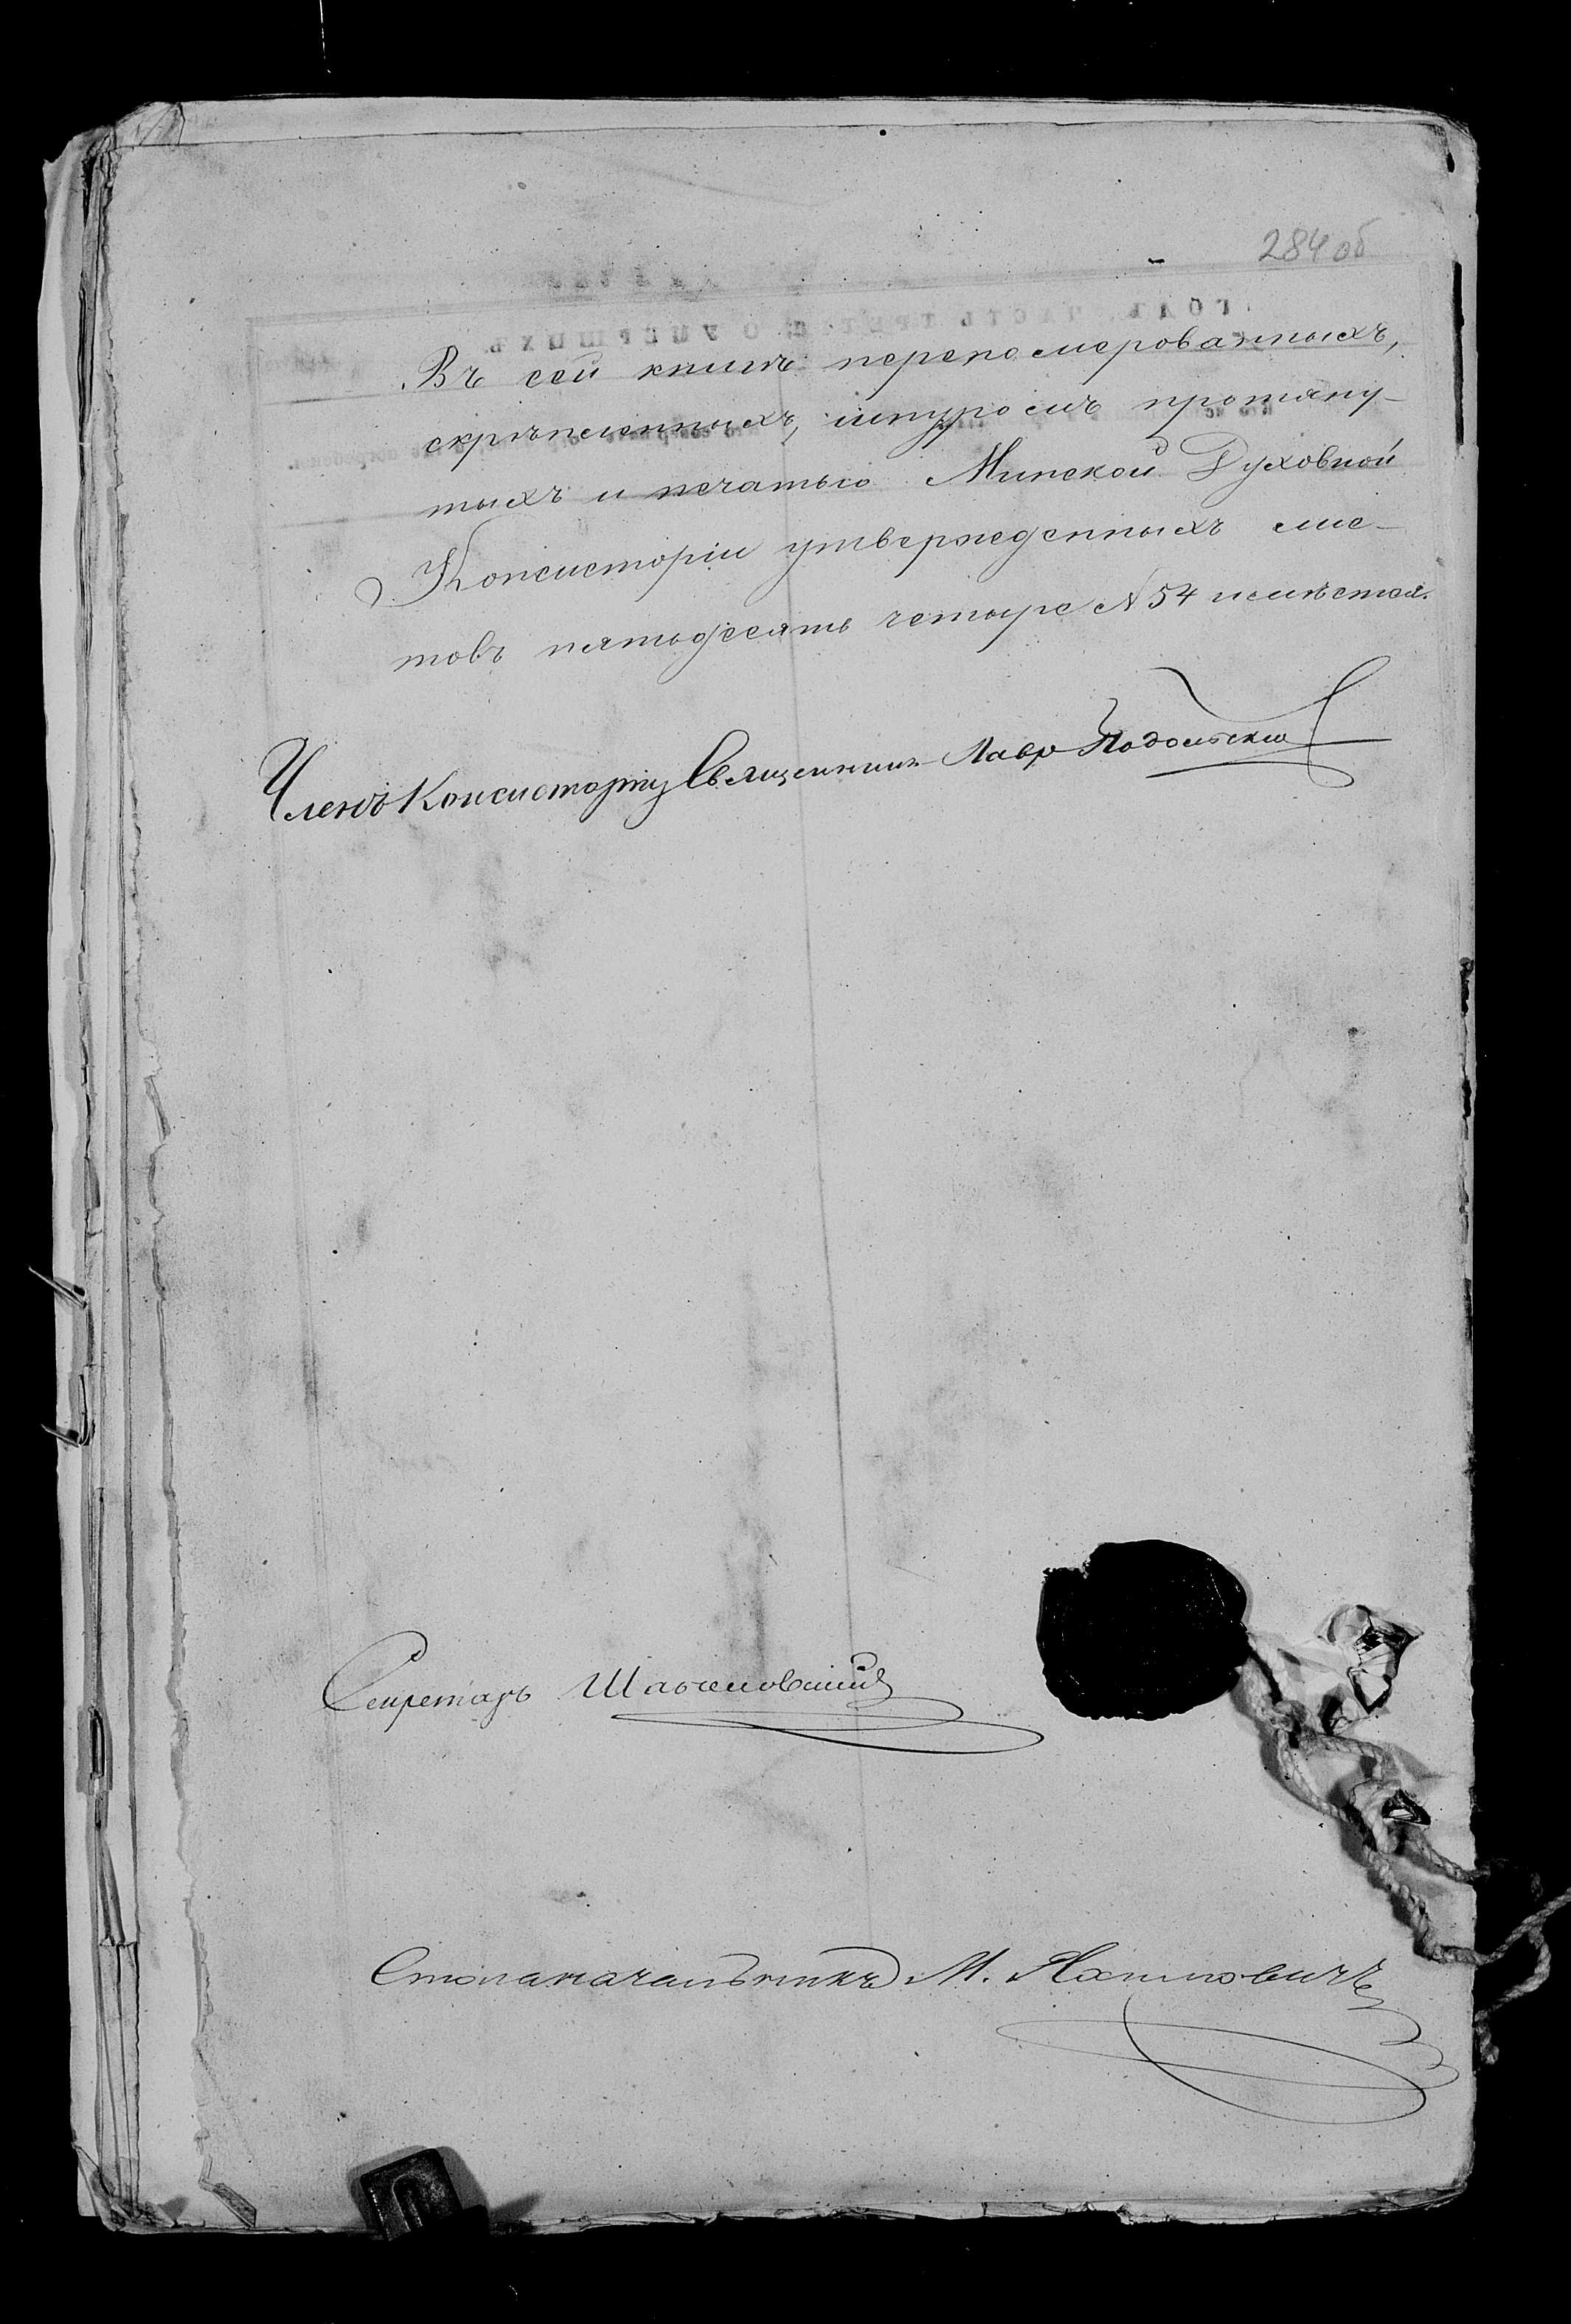 284 об
Въ сей книгѣ перепомерованныхъ,
скрѣпленныхъ, шнуромъ протяну-
тыхъ и печатью Минской Духовной
Консисторіи утвержденныхъ лис-
товъ пятьдесятъ четыре № 54 имѣется.
Членъ Консисторіи Священникъ Лавр Подольскій
Секретарь
Столоначальникъ М.